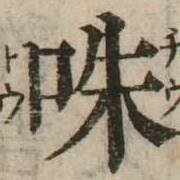 チウ
咮
トウ